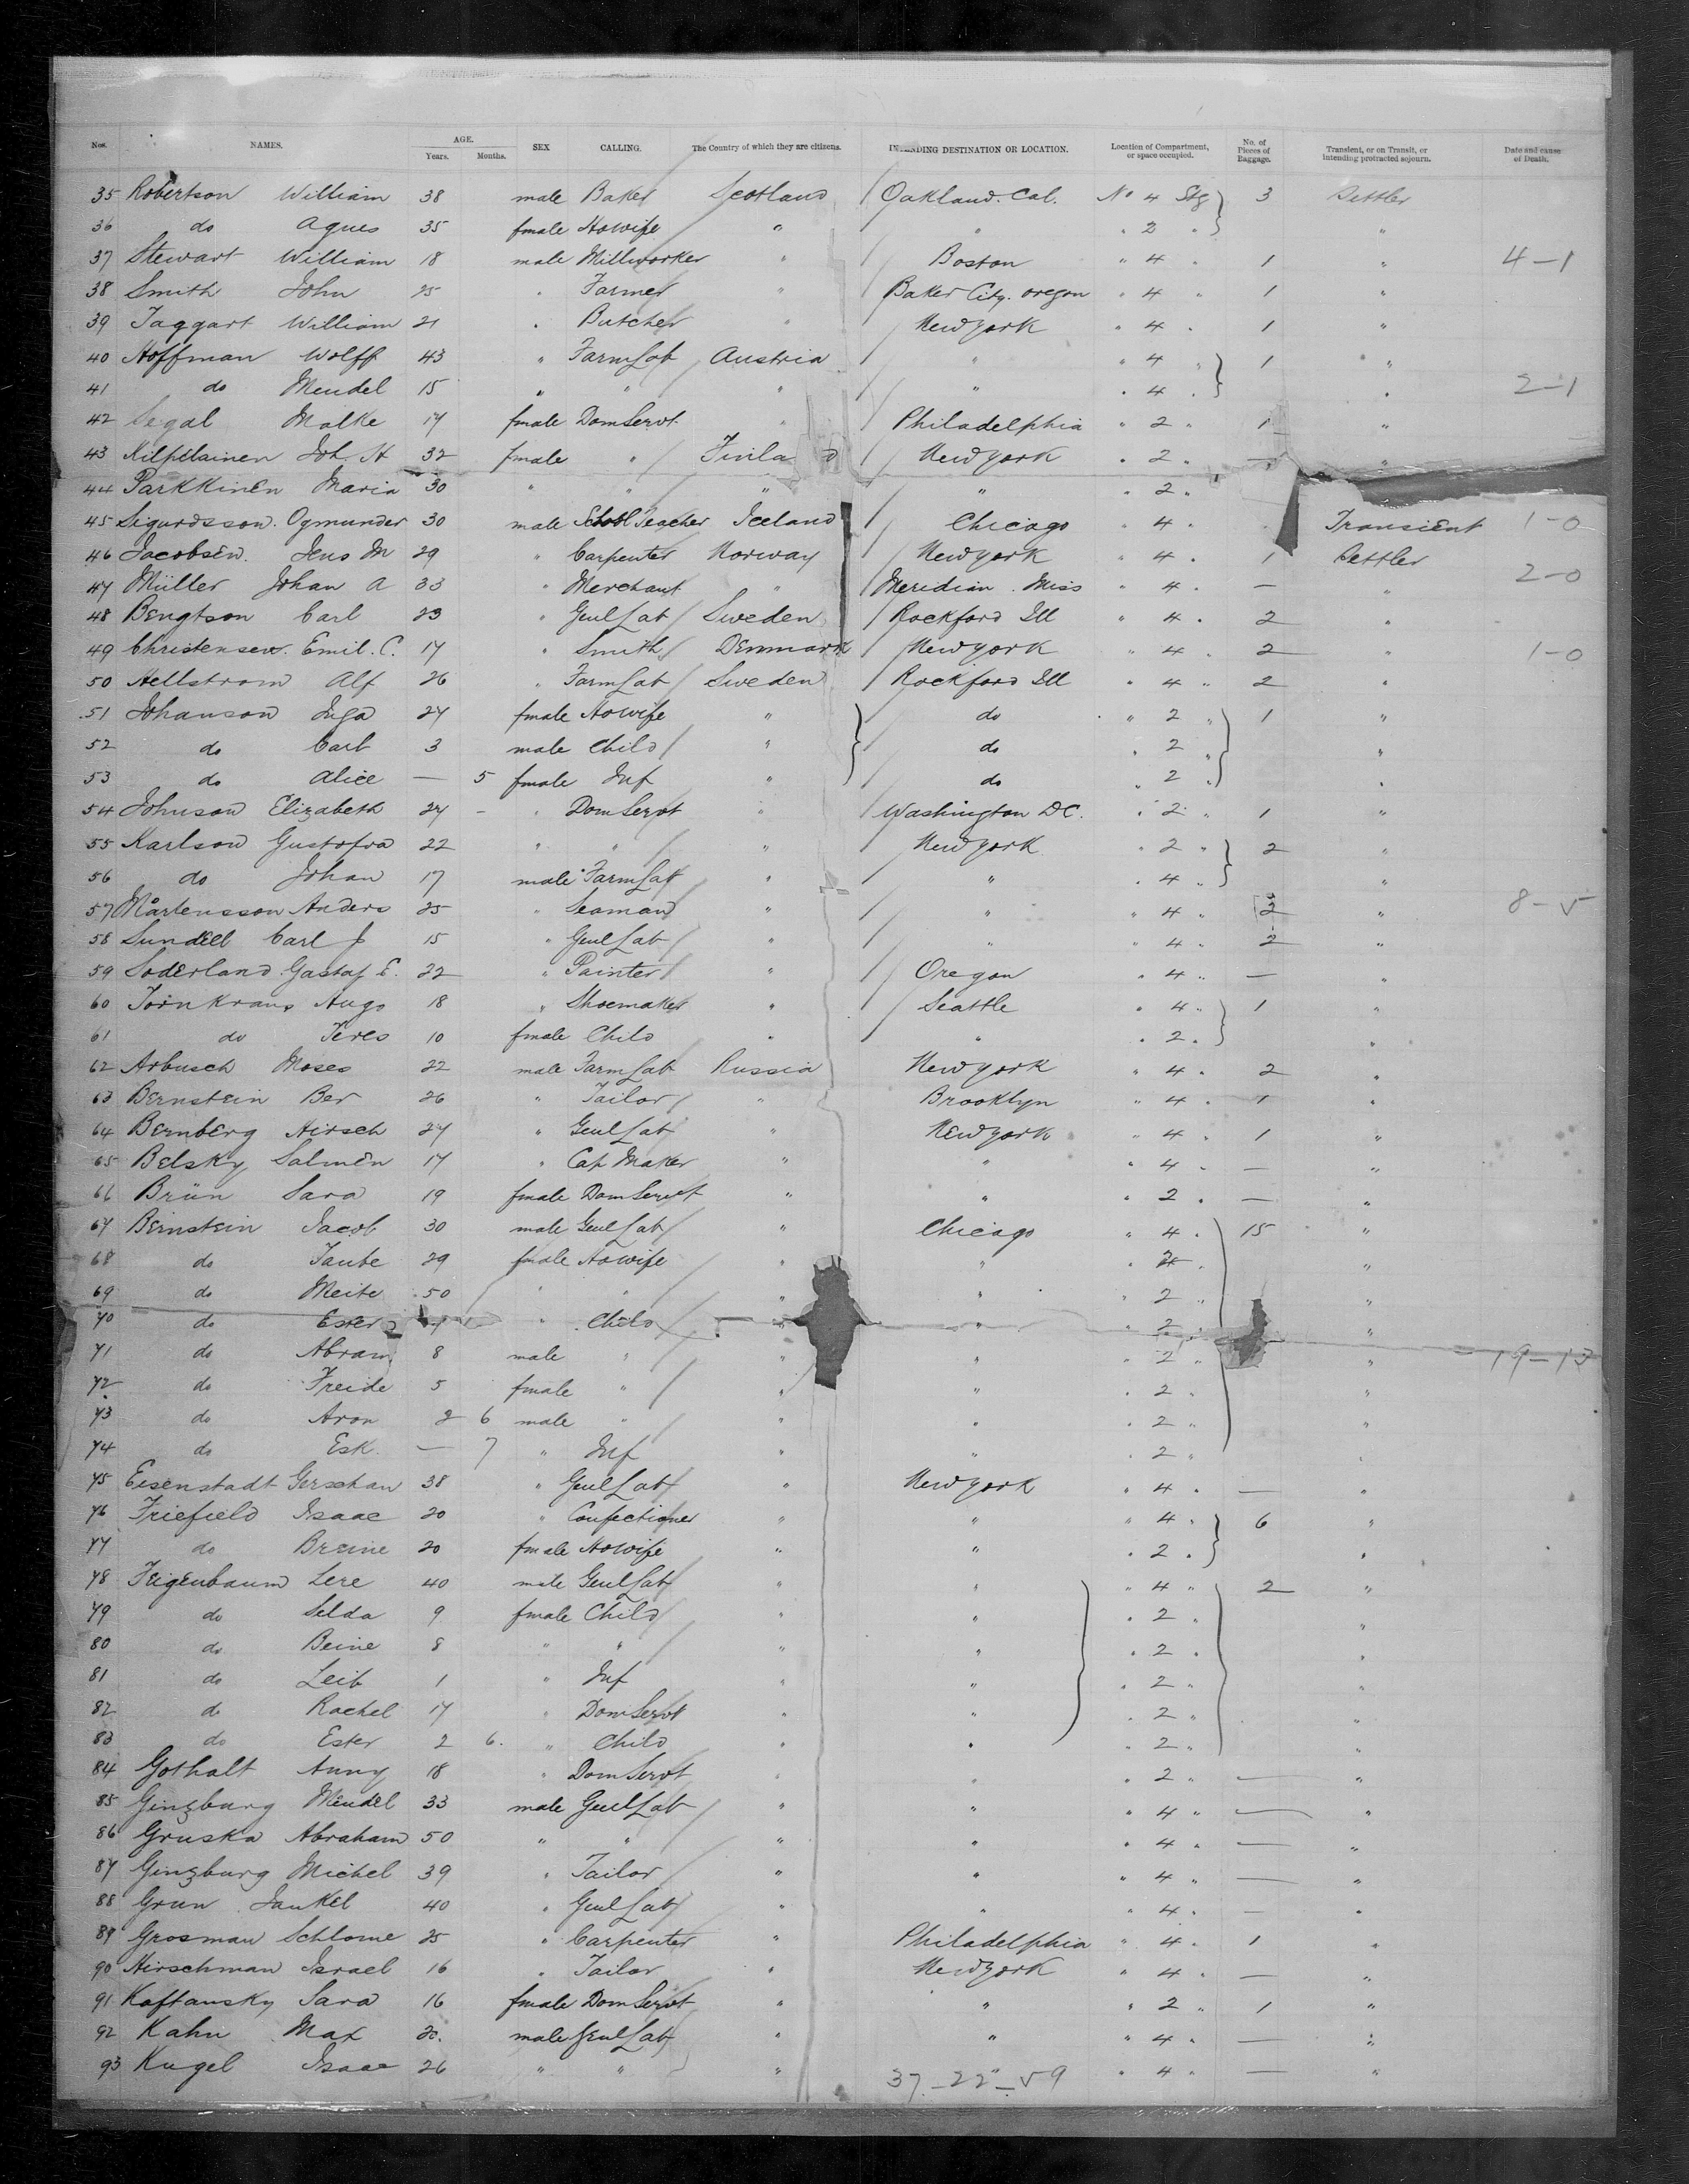 Nos. NAMES. AGE. Years. Months. SEX CALLING. The Country of which they are citizens. INTENDING DESTINATION OR LOCATION. Location of Compartment, or space occupied. No. of Pieces of Baggage. Transient, or on Transit, or intending protracted sojourn. Date and cause of Death.
35 Robertson William 38 male Baker Scotland Oakland. Cal. No 4 Stg 3 Settler
36 do Agnes 35 fmale Howife " " " 2 " "
37 Stewart William 18 male Millworker " Boston " 4 " 1 " 4-1
38 Smith John 25 " Farmer " Baker City. Oregon " 4 " 1 "
39 Taggart William 21 " Butcher " New york " 4 " 1 "
40 Hoffman Wolff 43 " Farm Lab Austria " " 4 " 1 "
41 do Mendel 15 " " " " " 4 " " 2-1
42 Segal Malke 17 fmale Dom Servt. " Philadelphia " 2 " 1 "
43 Kilpelainen Joh. H 32 fmale " Finla d New york " 2 " — "
44 Parkkinen Maria 30 " " " " " 2 "
45 Sigurdsson. Ogmunder 30 male School Teacher Iceland Chicago " 4 " Transient 1-0
46 Jacobsen. Jens M 29 " Carpenter Norway New york " 4 " 1 Settler
47 Müller Johan A 33 " Merchant " Meridian. Miss " 4 " — " 2-0
48 Bengtson Carl 23 " Genl Lab Sweden Rockford Ill " 4 " 2 "
49 Christensen. Emil. C. 17 " Smith Denmark New york " 4 " 2 " 1-0
50 Hellstrom Alf 26 " Farm Lab Sweden Rockford Ill " 4 " 2 "
51 Johanson Inga 27 fmale Howife " do " 2 " 1 "
52 do Carl 3 male Child " do " 2 " "
53 do Alice — 5 fmale Inf " do " 2 " "
54 Johnson Elizabeth 27 - " Dom Servt " Washington DC. " 2 " 1 "
55 Karlson Gustafva 22 " " " New york " 2 " 2 "
56 do Johan 17 male Farm Lab " " " 4 " "
57 Mårtensson Anders 25 " Seaman " " " 4 " 2 " 8-5
58 Sundell Carl J 15 " Genl Lab " " " 4 " 2 "
59 Soderland Gustaf E. 22 " Painter " Oregon " 4 " — "
60 Törnkrans Augs 18 " Shoemaker " Seattle " 4 " 1 "
61 do Teres 10 fmale Child " " " 2 " "
62 Arbusch Moses 22 male Farm Lab Russia New york " 4 " 2 "
63 Bernstein Ber 26 " Tailor " Brooklyn " 4 " 1 "
64 Bernberg Hirsch 27 " Genl Lab " New york " 4 " 1 "
65 Belsky Salmen 17 " Cap Maker " " " 4 " — "
66 Brün Sara 19 fmale Dom Servt " " " 2 " — "
67 Bernstein Jacob 30 male Genl Lab " Chicago " 4 " 15 "
68 do Taube 29 fmale Howife " " " 2 " "
69 do Meite 50 " " " " " 2 " "
70 do Ester " Child " " " 2 " "
71 do Abram 8 male " " " " 2 " " 19-13
72 do Freide 5 fmale " " " " 2 " "
73 do Aron 2 6 male " " " " 2 " "
74 do Esk. — 7 " Inf " " " 2 " "
75 Eisenstadt Gerschan 38 " Genl Lab " New york " 4 " — "
76 Friefield Isaac 20 " Confectioner " " " 4 " 6 "
77 do Breine 20 fmale Howife " " " 2 " "
78 Feigenbaum Lere 40 male Genl Lab " " " 4 " 2 "
79 do Selda 9 fmale Child " " " 2 " "
80 do Beine 8 " " " " " 2 " "
81 do Leib 1 " Inf " " " 2 " "
82 do Rachel 17 " Dom Servt " " " 2 " "
83 do Ester 2 6. " Child " " " 2 " "
84 Gothalt Anny 18 " Dom Servt " " " 2 " — "
85 Ginzburg Mendel 33 male Genl Lab " " " 4 " — "
86 Gruska Abraham 50 " " " " " 4 " — "
87 Ginzburg Michel 39 " Tailor " " " 4 " — "
88 Grun Jankel 40 " Genl Lab " " " 4 " — "
89 Grosman Schlome 25 " Carpenter " Philadelphia " 4 " 1 "
90 Hirschman Israel 16 " Tailor " New york " 4 " — "
91 Kaftansky Sara 16 fmale Dom Servt " " " 2 " 1 "
92 Kahn Max 20. male Genl Lab " " " 4 " — "
93 Kugel Isaac 26 " " " " " 4 " — "
37-22-59